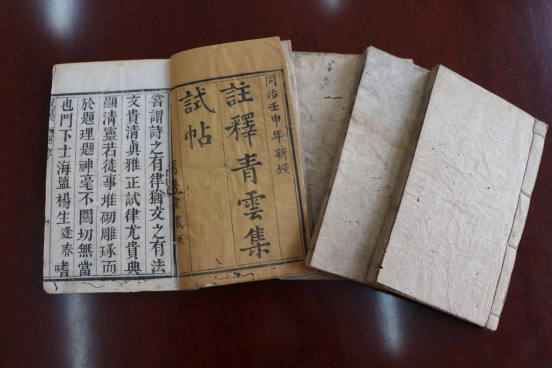 同治壬申年新
註釋青雲集
試帖
藏版
嘗謂詩之有律猶文之有法
文貴清真雅正試律尤貴典
顯清靈若徒事堆砌雕琢而
於題理題神毫不關切無當
也門下士海鹽楊生逢春嗜